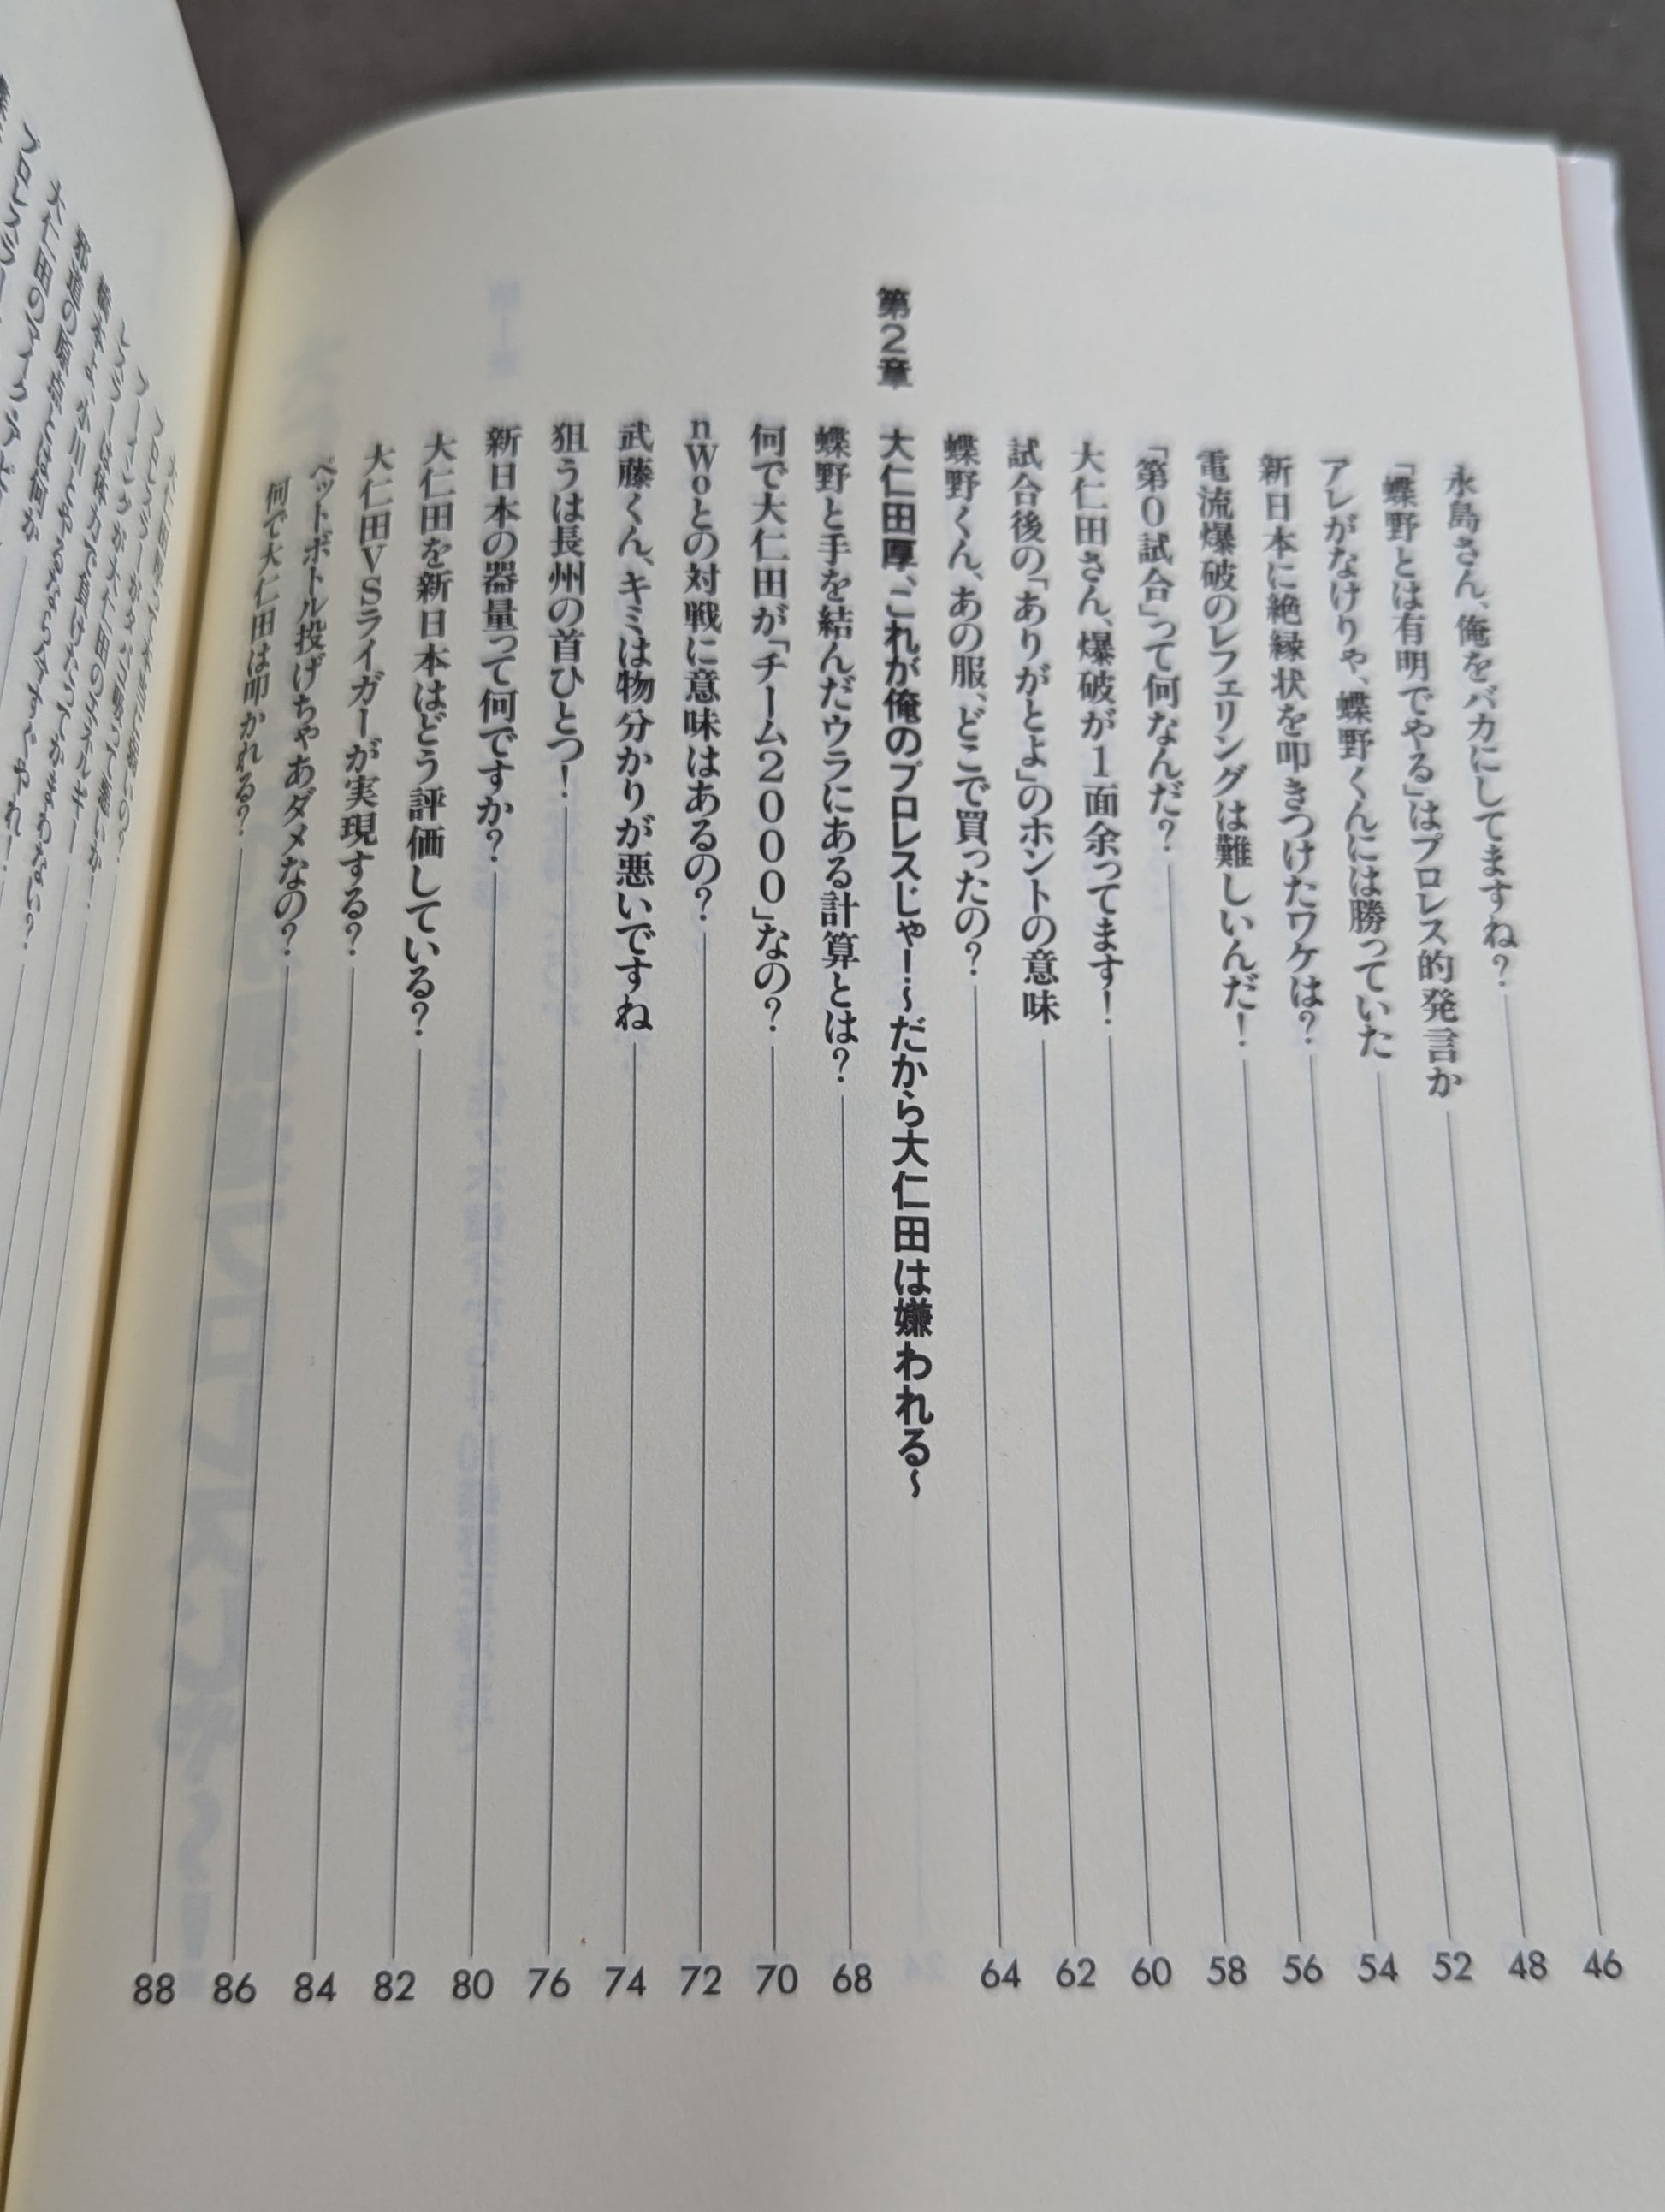 永島さん、俺をバカにしてますね? 46
「蝶野とは有明でやる」はプロレス的発言か 48
アレがなけりゃ、蝶野くんには勝っていた 52
新日本に絶縁状を叩きつけたワケは? 54
電流爆破のレフェリングは難しいんだ! 56
「第0試合」って何なんだ? 58
大仁田さん、爆破が1面余ってます! 60
試合後の「ありがとよ」のホントの意味 62
蝶野くん、あの服、どこで買ったの? 64
第2章 大仁田厚、これが俺のプロレスじゃー!〜だから大仁田は嫌われる〜
蝶野と手を結んだウラにある計算とは? 68
何で大仁田が「チーム2000」なの? 70
nWoとの対戦に意味はあるの? 72
武藤くん、キミは物分かりが悪いですね 74
狙うは長州の首ひとつ! 76
新日本の器量って何ですか? 80
大仁田を新日本はどう評価している? 82
大仁田VSライガーが実現する? 84
ペットボトル投げちゃあダメなの? 86
何で大仁田は叩かれる? 88
大仁田の
邪道の原点とは何か